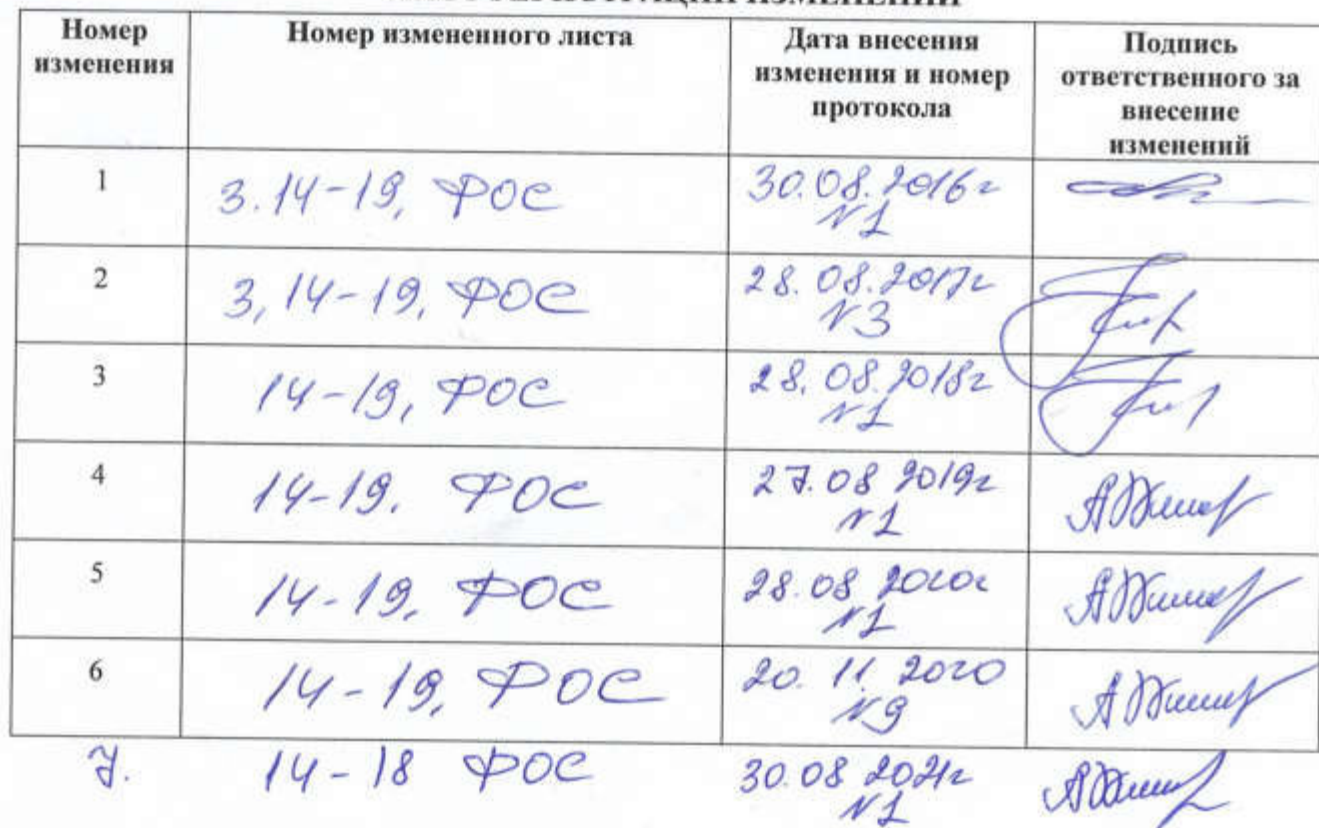 Номер изменения
Номер измененного листа
Дата внесения изменения и номер протокола
Подпись ответственного за внесение изменений
1
3.14-19, ФОС
30.08.2016г
N1
2
3,14-19, ФОС
28.08.2017г
N3
3
14-19, ФОС
28.08.2018г
N1
4
14-19. ФОС
27.08 2019г
N1
5
14-19, ФОС
28.08 2020г
N1
6
14-19, ФОС
20.11.2020
N9
7.
14-18 ФОС
30.08 2021г
N1